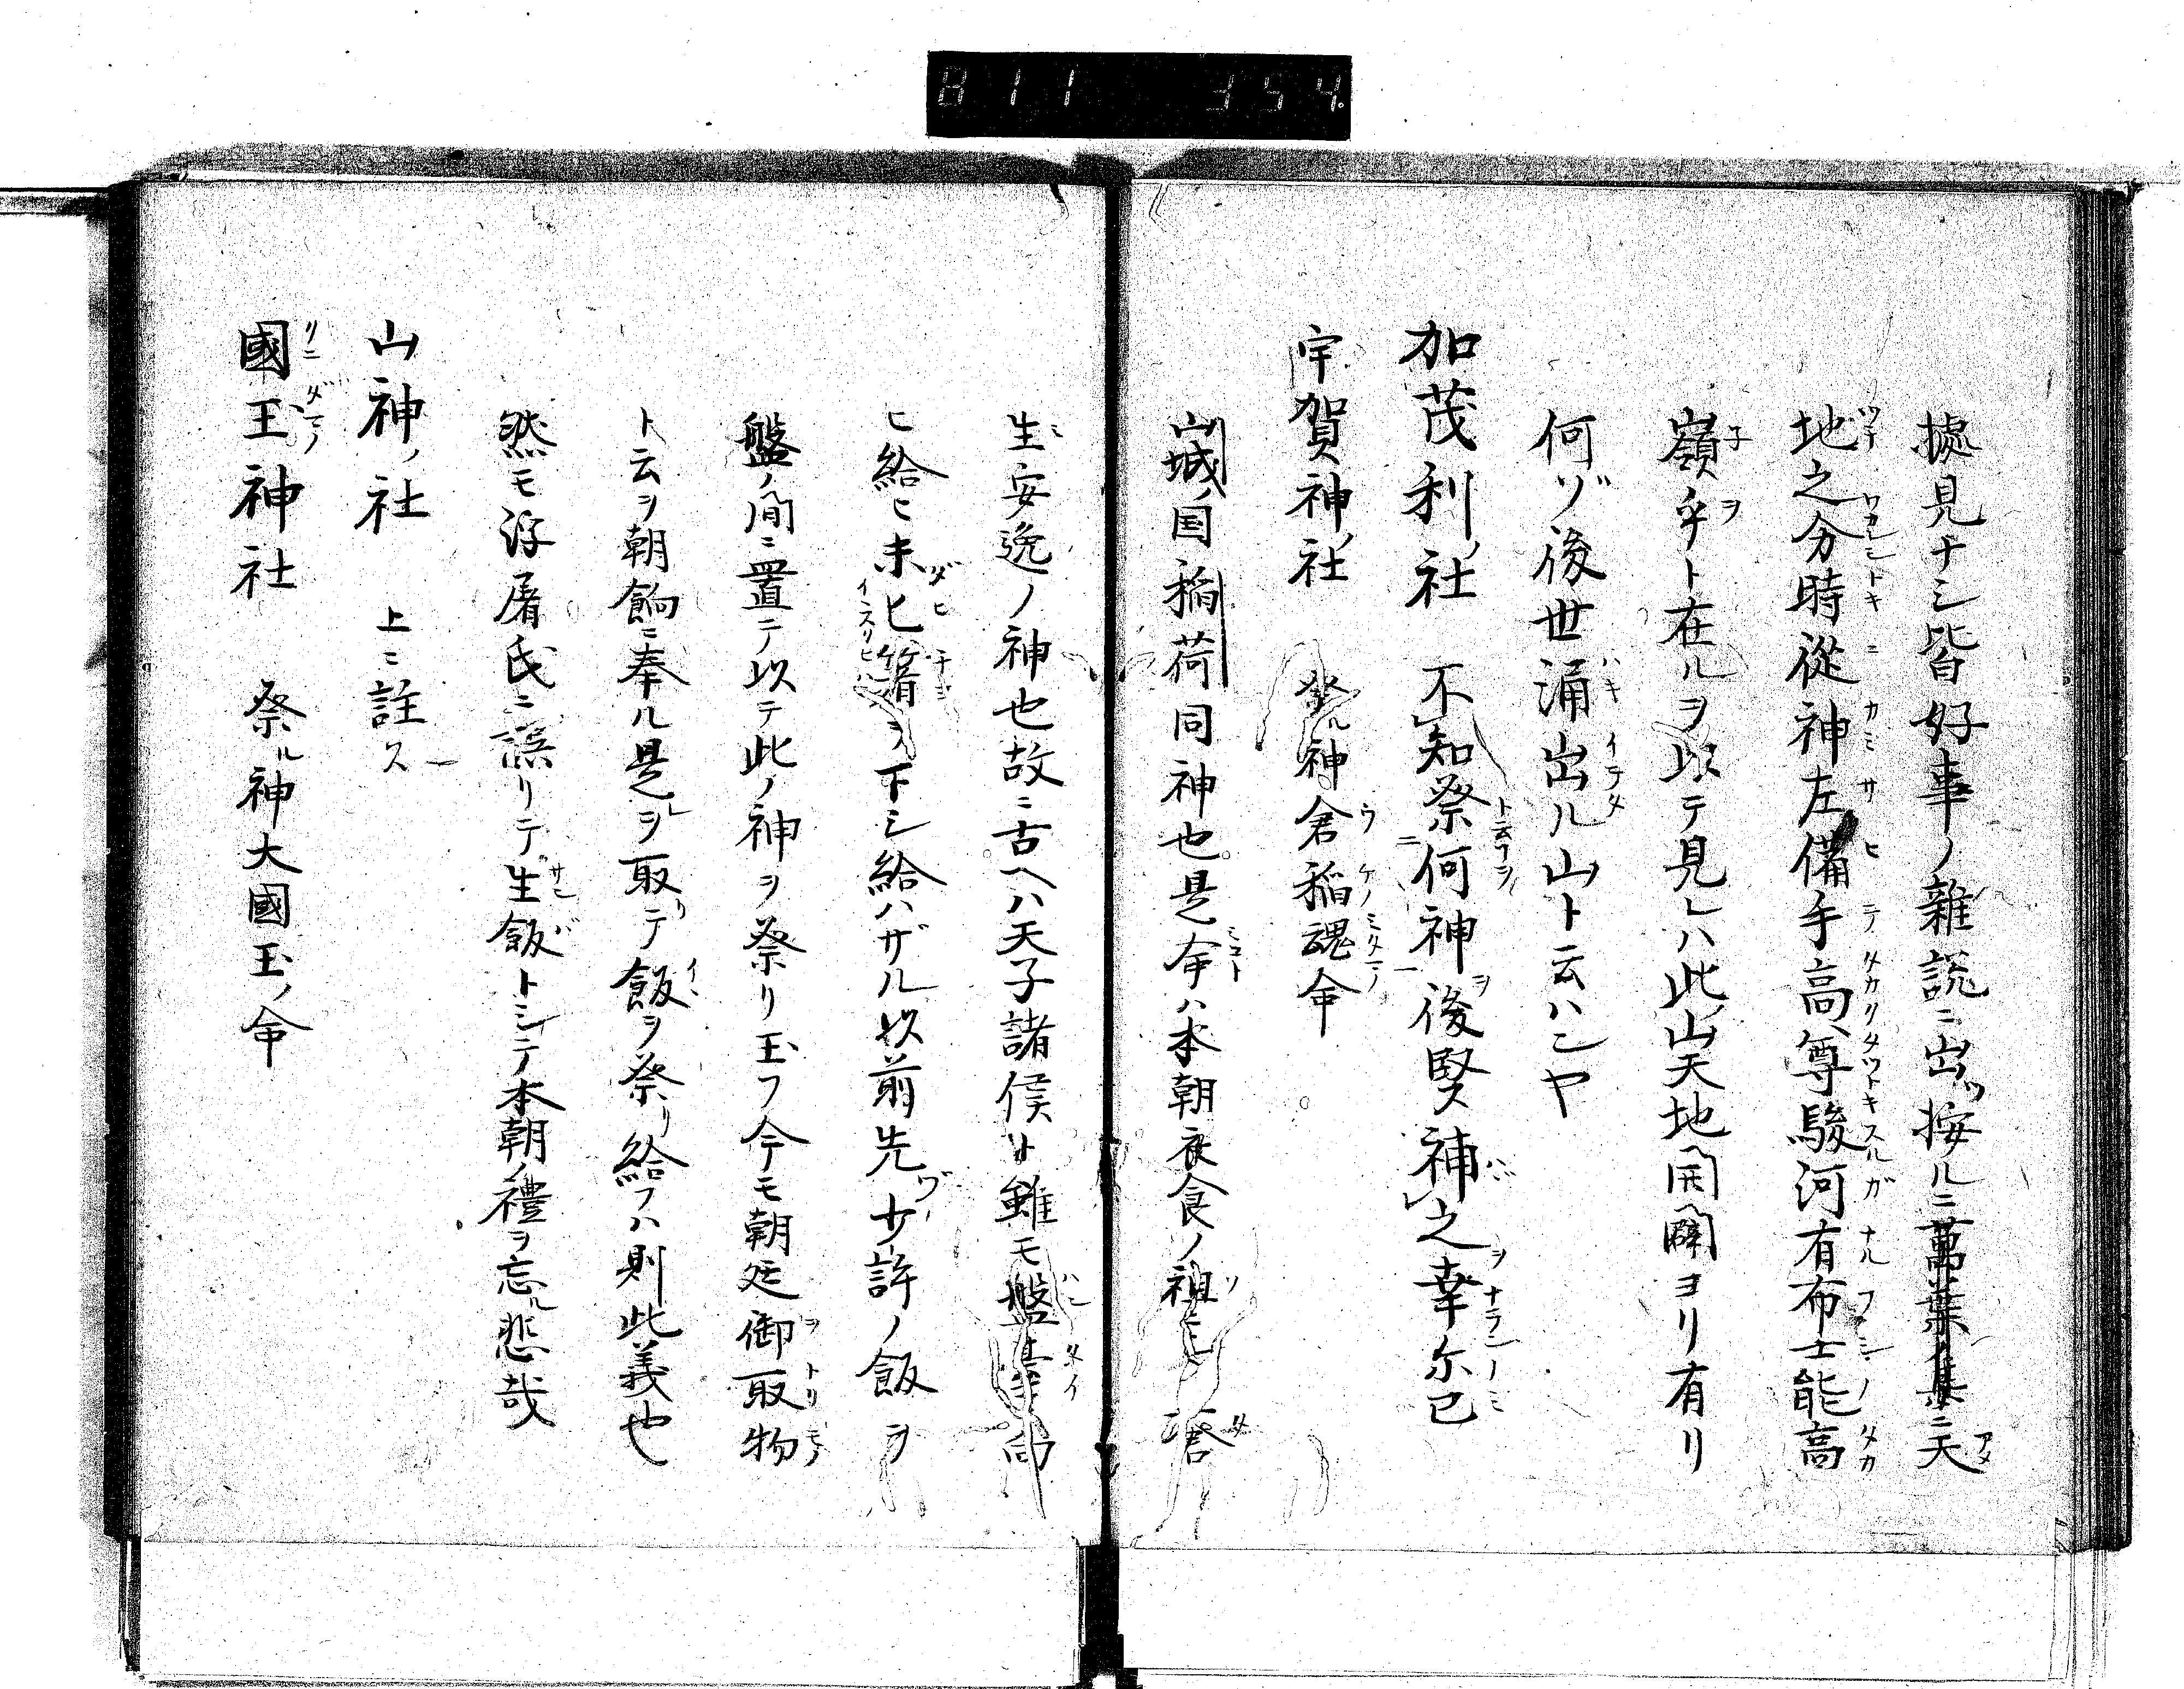 811 354
據見ナシ皆好事ノ雜説ニ出ツ按ルニ萬葉集ニ天
地之分時從神左備手高尊駿河有布士能高
嶺乎ト在ルヲ以テ見レハ此山天地開闢ヨリ有リ
何ゾ後世涌出ル山ト云ハンヤ
加茂利ノ社 不知祭何神ヲ後賢補之幸尓已
宇賀神ノ社 祭ル神倉稲魂命
山城ノ国稲荷同神也是命ハ本朝衣食ノ祖ニシ 蒼
生安逸ノ神也故ニ古ヘハ天子諸侯ト雖モ盤臺向
ヒ給ヒ未匕箸ヲ下シ給ハザル以前先少許ノ飯ヲ
盤ノ間ニ置テ以テ此ノ神ヲ祭リ玉フ今モ朝廷御取物
ト云ヲ朝餉ニ奉ル是ヲ取テ飯ヲ祭リ給フハ則此義也
然モ浮屠氏ニ誤リテ生飯トシテ本朝ノ禮ヲ忘ル悲哉
山神ノ社 上ニ註ス
國王神社 祭ル神大國玉ノ命